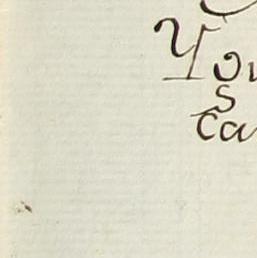 You
s
ca